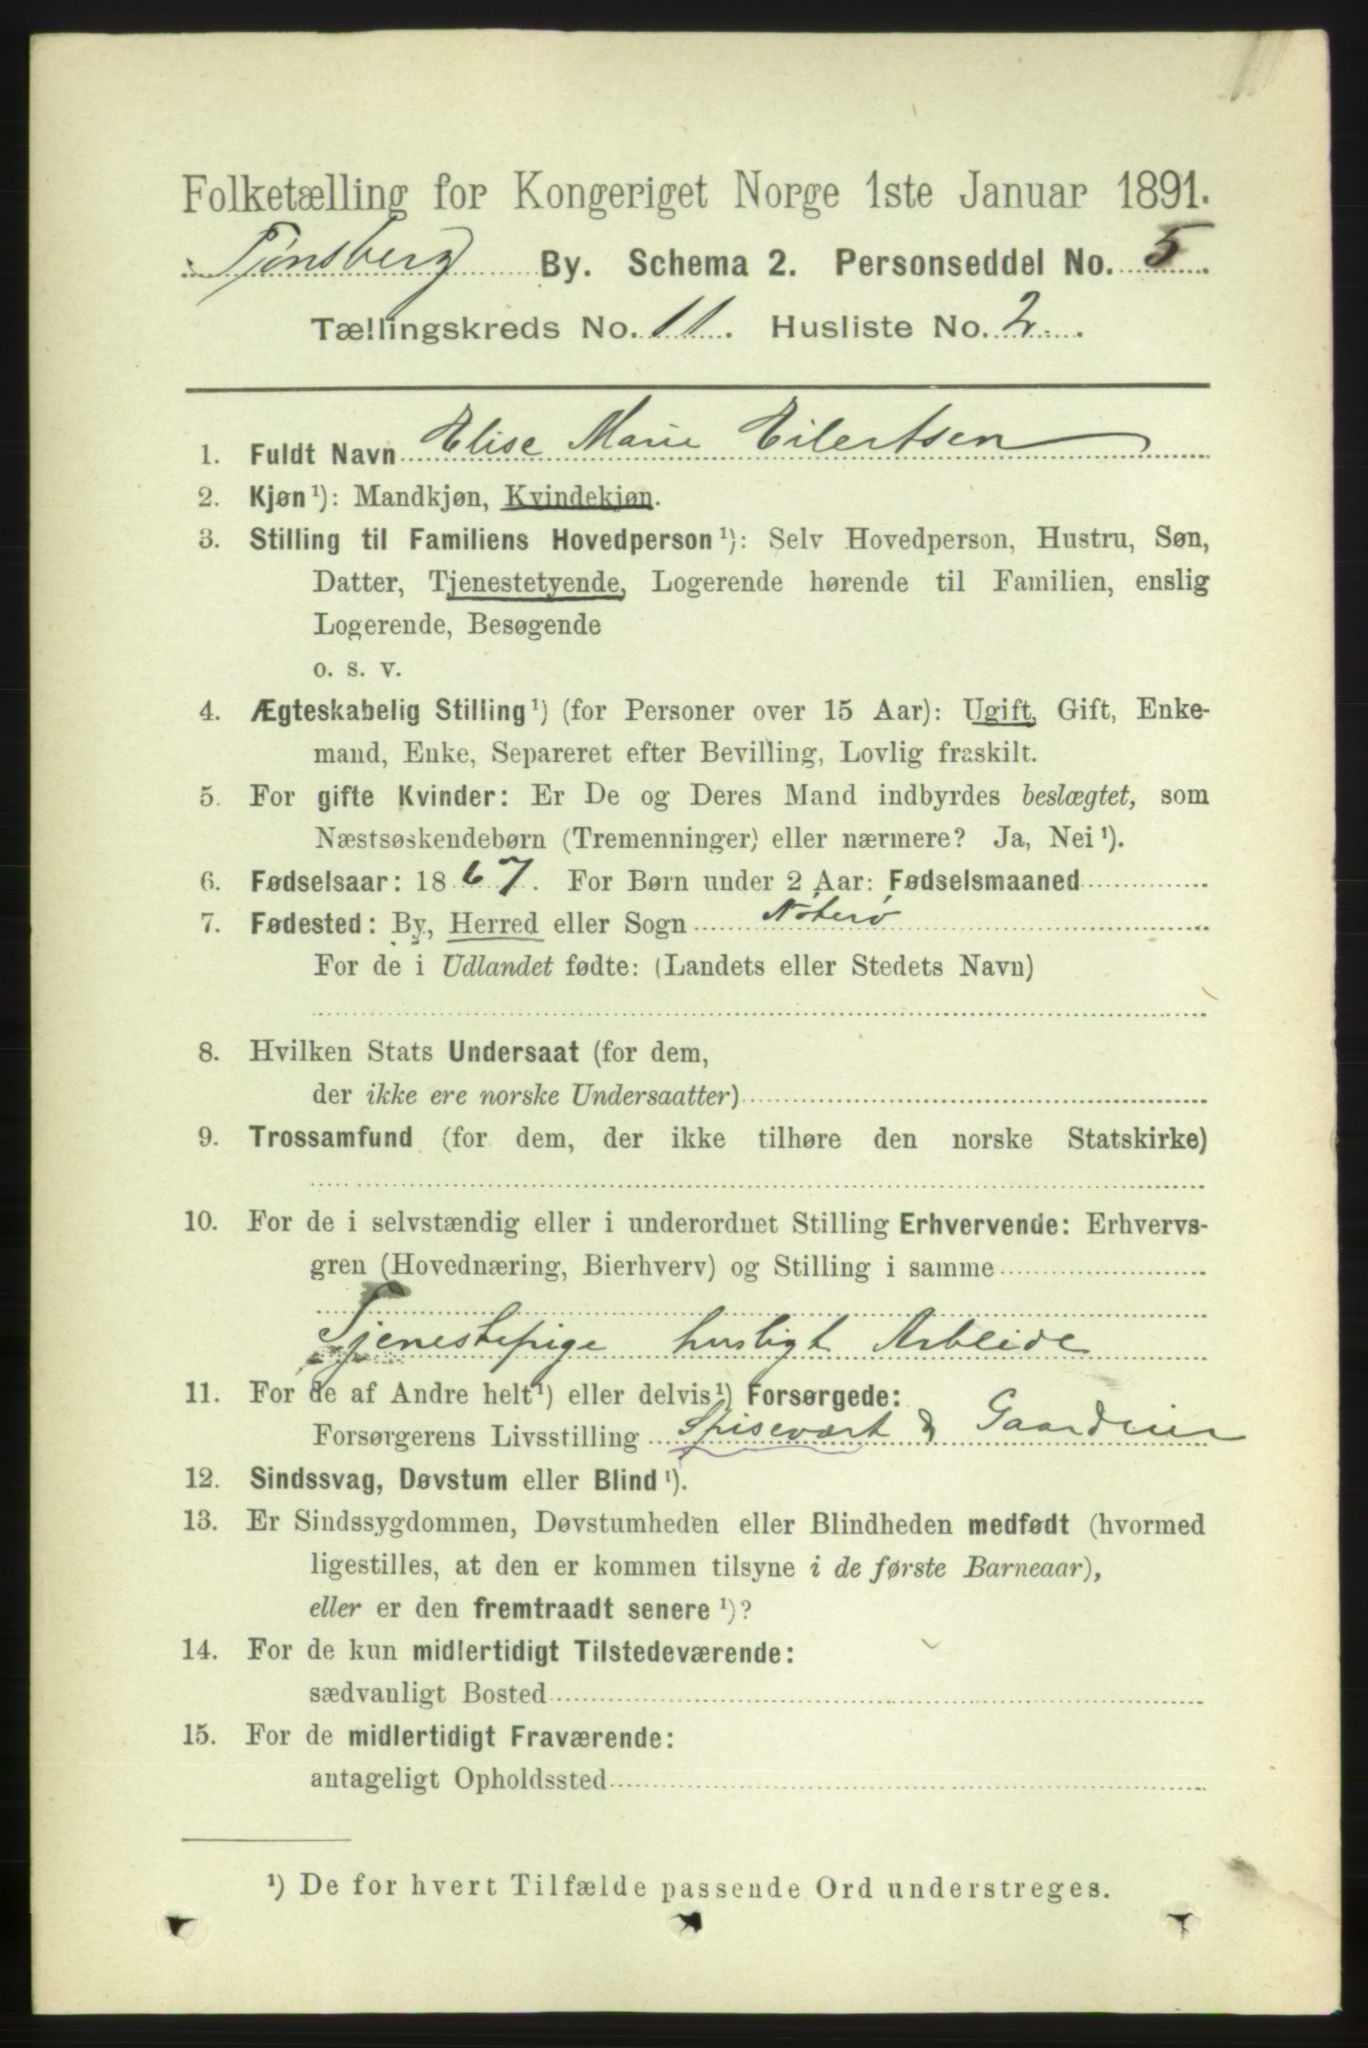 Folketælling for Kongeriget Norge 1ste Januar 1891.
Tønsberg By. Schema 2. Personseddel No. 5
Tællingskreds No. 11. Husliste No. 2.
1. Fuldt Navn Elise Marie Eilertsen
2. Kjøn ¹): Mandkjøn, Kvindekjøn.
3. Stilling til Familiens Hovedperson ¹): Selv Hovedperson, Hustru, Søn,
Datter, Tjenestetyende, Logerende hørende til Familien, enslig
Logerende, Besøgende
o. s. v.
4. Ægteskabelig Stilling ¹) (for Personer over 15 Aar): Ugift, Gift, Enke-
mand, Enke, Separeret efter Bevilling, Lovlig fraskilt.
5. For gifte Kvinder: Er De og Deres Mand indbyrdes beslægtet, som
Næstsøskendebørn (Tremenninger) eller nærmere? Ja, Nei ¹).
6. Fødselsaar: 1867. For Børn under 2 Aar: Fødselsmaaned
7. Fødested: By, Herred eller Sogn Nøterø
For de i Udlandet fødte: (Landets eller Stedets Navn)
8. Hvilken Stats Undersaat (for dem,
der ikke ere norske Undersaatter)
9. Trossamfund (for dem, der ikke tilhøre den norske Statskirke)
10. For de i selvstændig eller i underordnet Stilling Erhvervende: Erhvervs-
gren (Hovednæring, Bierhverv) og Stilling i samme
Tjenestepige husligt Arbeide
11. For de af Andre helt ¹) eller delvis ¹) Forsørgede:
Forsørgerens Livsstilling Spisevært & Gaardeier
12. Sindssvag, Døvstum eller Blind ¹).
13. Er Sindssygdommen, Døvstumheden eller Blindheden medfødt (hvormed
ligestilles, at den er kommen tilsyne i de første Barneaar),
eller er den fremtraadt senere ¹)?
14. For de kun midlertidigt Tilstedeværende:
sædvanligt Bosted
15. For de midlertidigt Fraværende:
antageligt Opholdssted
¹) De for hvert Tilfælde passende Ord understreges.